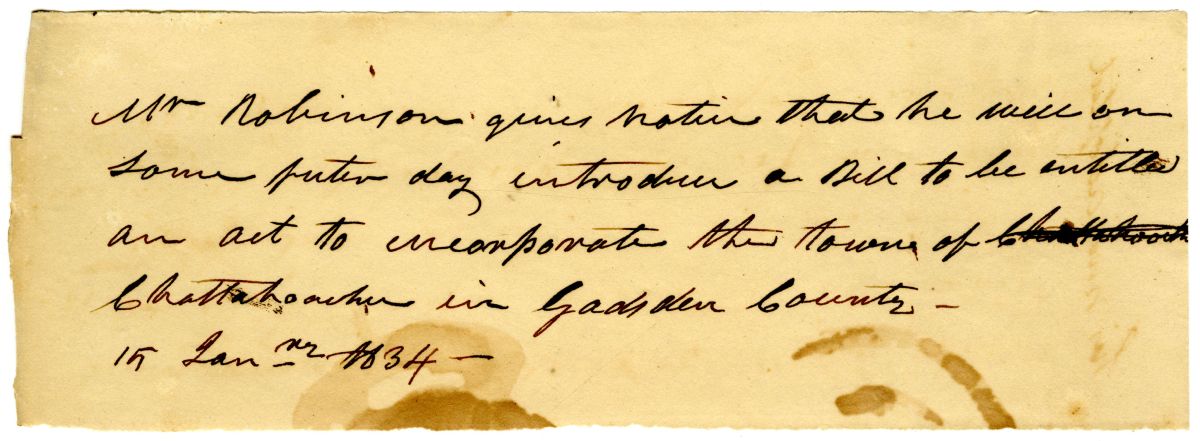 Mr Robinson gives notice that he will on
some futer day introduce a Bill to be entitled
an act to incorporate the towne of Chattahooch
Chattahoochee in Gadsden County –
15 Janry 1834 –